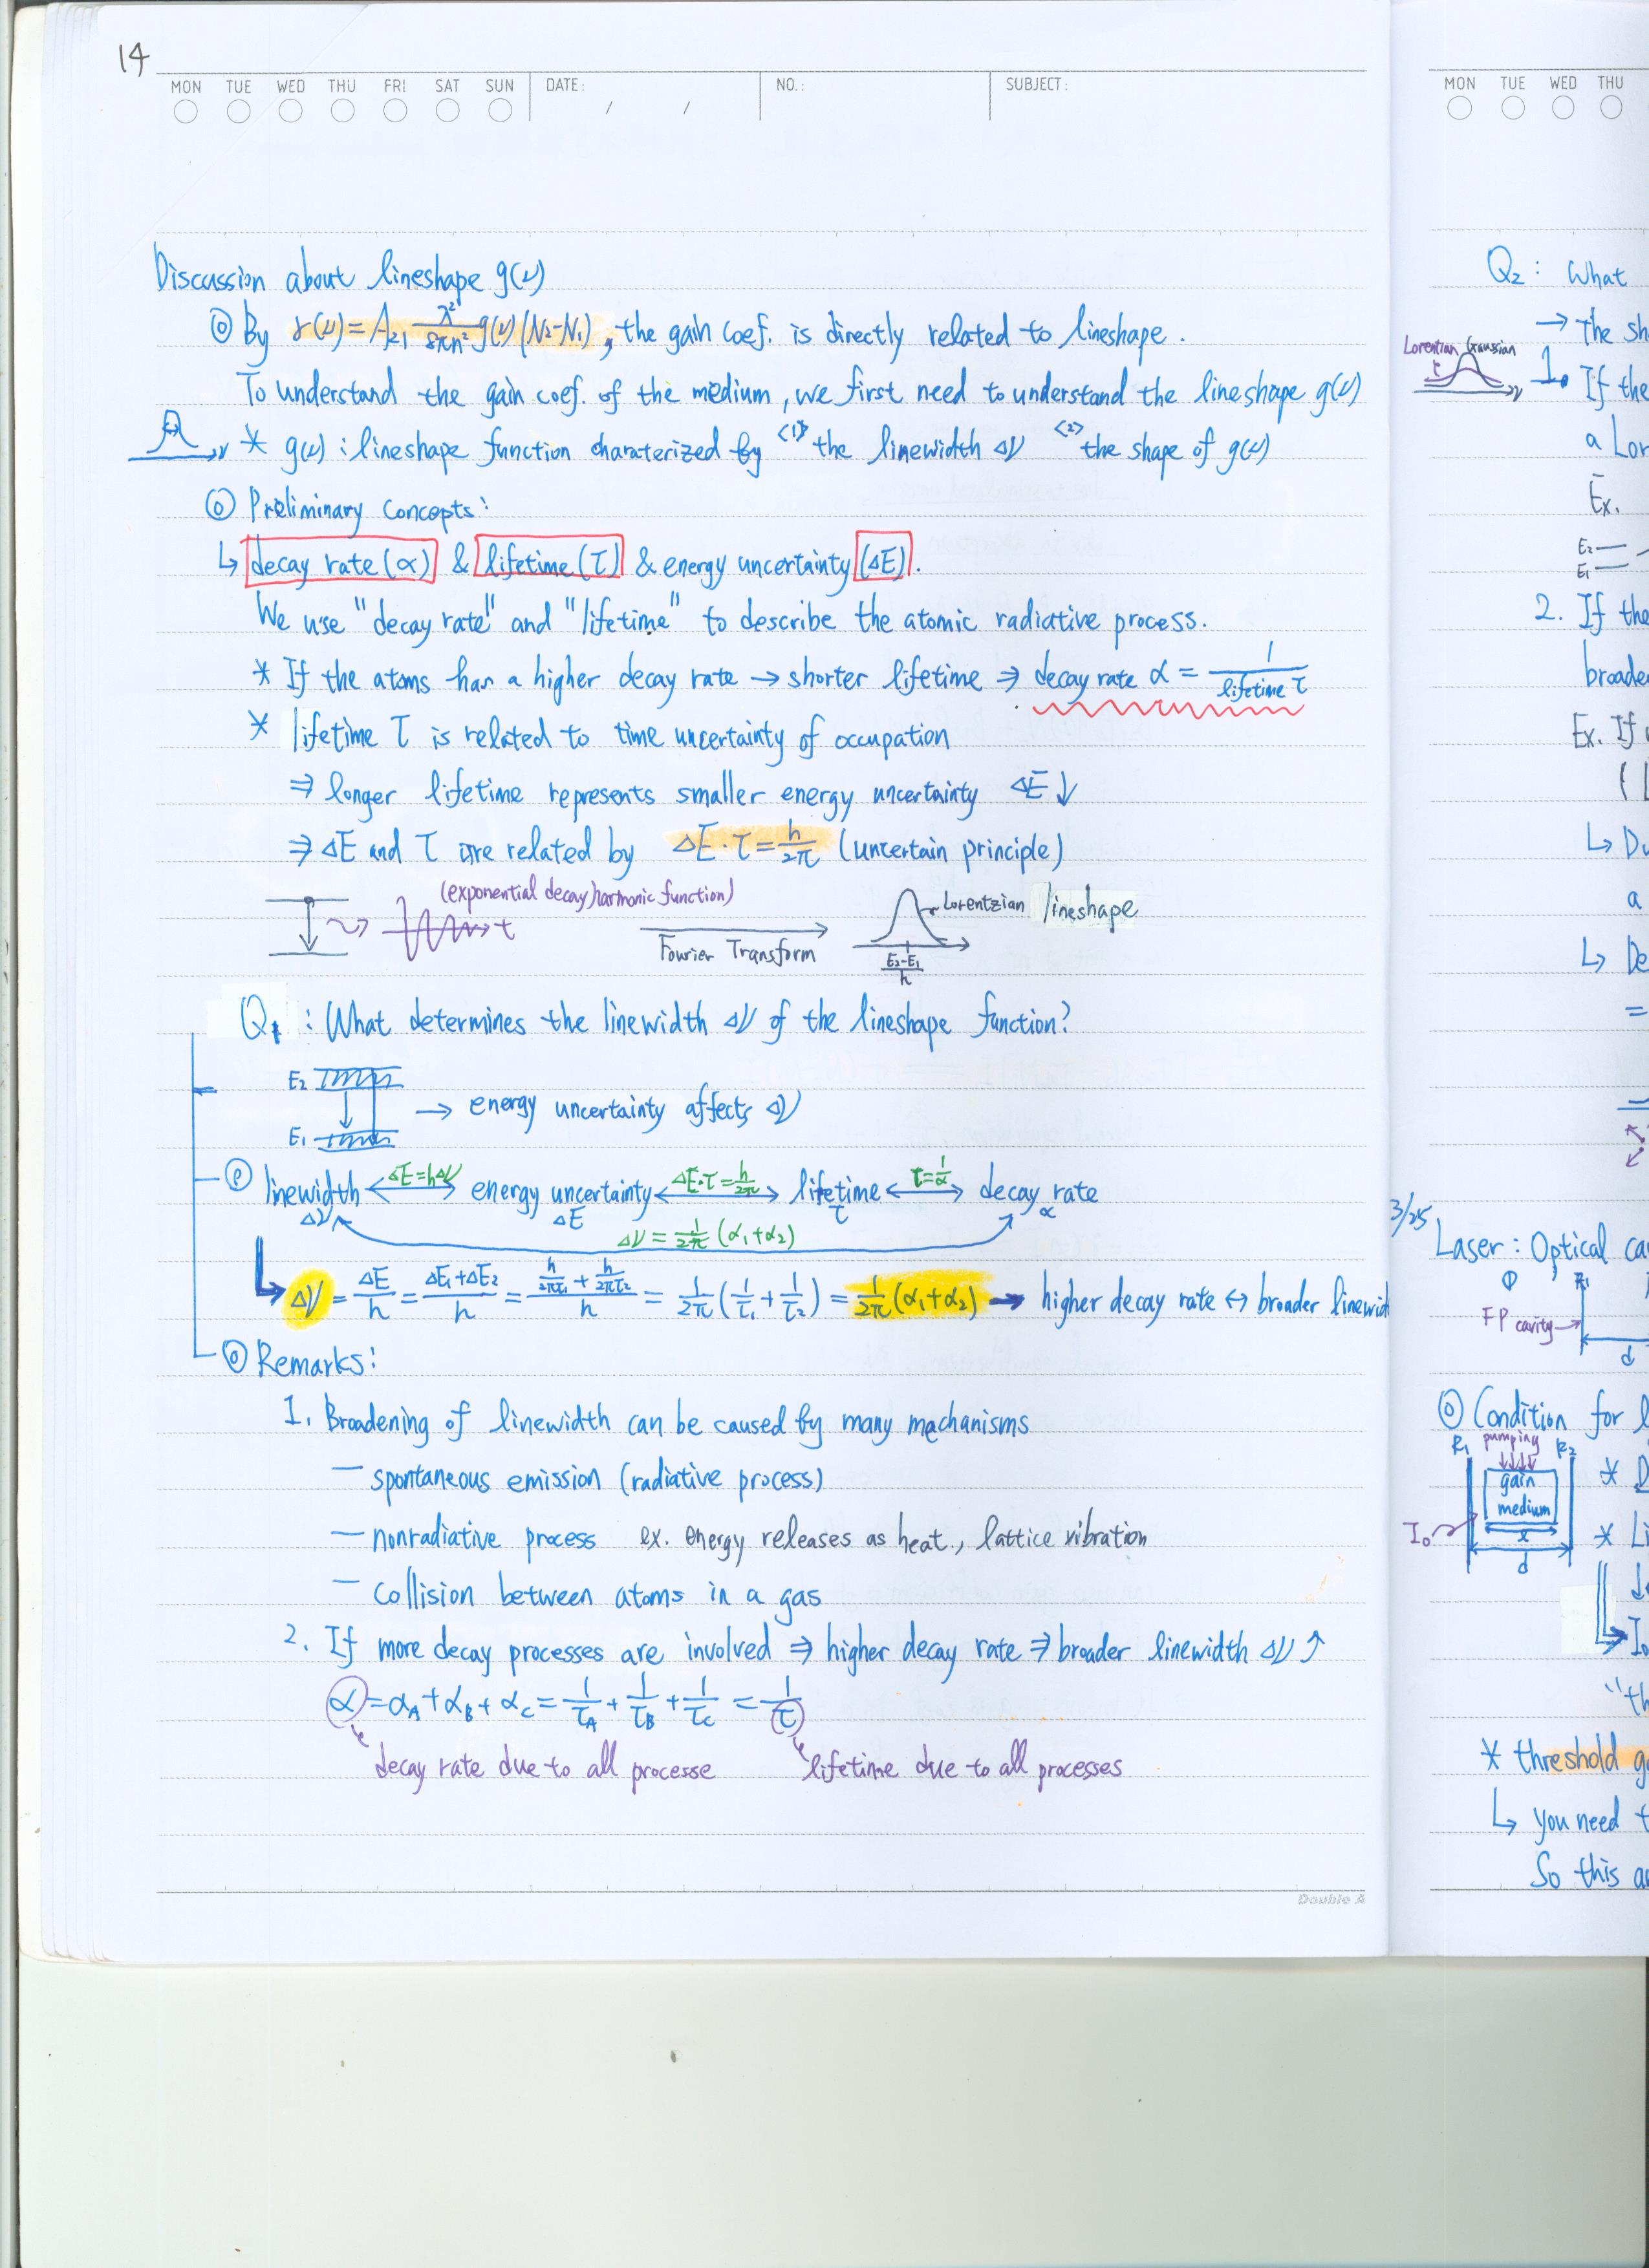 14
MON TUE WED THU FRI SAT SUN DATE: / / NO.: SUBJECT:
Discussion about lineshape g(ν)
◎ By γ(ν)=A₂₁ λ²/8πn² g(ν)(N₂-N₁), the gain coef. is directly related to lineshape.
To understand the gain coef. of the medium, we first need to understand the lineshape g(ν)
ν * g(ν): lineshape function charaterized by <1> the linewidth Δν <2> the shape of g(ν)
◎ Preliminary concepts:
↳ decay rate (α) & lifetime (τ) & energy uncertainty (ΔE).
We use "decay rate" and "lifetime" to describe the atomic radiative process.
* If the atoms has a higher decay rate → shorter lifetime ⇒ decay rate α = 1/lifetime τ
* lifetime τ is related to time uncertainty of occupation
⇒ longer lifetime represents smaller energy uncertainty ΔE↓
⇒ ΔE and τ are related by ΔE·τ = h/2π (uncertain principle)
(exponential decay harmonic function)
t Fourier Transform Lorentzian lineshape
E₂-E₁/h
Q1: What determines the linewidth Δν of the lineshape function?
E₂
→ energy uncertainty affects Δν
E₁
linewidth ↔ energy uncertainty ↔ lifetime ↔ decay rate
ΔE=hΔν ΔE·τ=h/2π τ=1/α
Δν ΔE τ α
Δν = 1/2π (α₁+α₂)
Δν = ΔE/h = ΔE₁+ΔE₂/h = h/2πτ₁ + h/2πτ₂ / h = 1/2π (1/τ₁ + 1/τ₂) = 1/2π (α₁+α₂) → higher decay rate ↔ broader linewid
◎ Remarks:
1. Broadening of linewidth can be caused by many mechanisms
— spontaneous emission (radiative process)
— nonradiative process ex. energy releases as heat., lattice vibration
— collision between atoms in a gas
2. If more decay processes are involved ⇒ higher decay rate ⇒ broader linewidth Δν↑
α = αA + αB + αC = 1/τA + 1/τB + 1/τC = 1/τ
decay rate due to all processe lifetime due to all processes
Double A
MON TUE WED THU
Q₂: What
→ The sh
Lorentian Gaussian
ν
1. If the
a Lor
Ex.
E₂
E₁
2. If the
broade
Ex. If
↳ Du
a
↳ De
=
3/25
Laser: Optical ca
R₁
FP cavity
d
◎ Condition for l
R₁ pumping R₂
gain
medium
I₀
d
* D
* Li
I₀
"th
* threshold g
↳ you need t
So this a